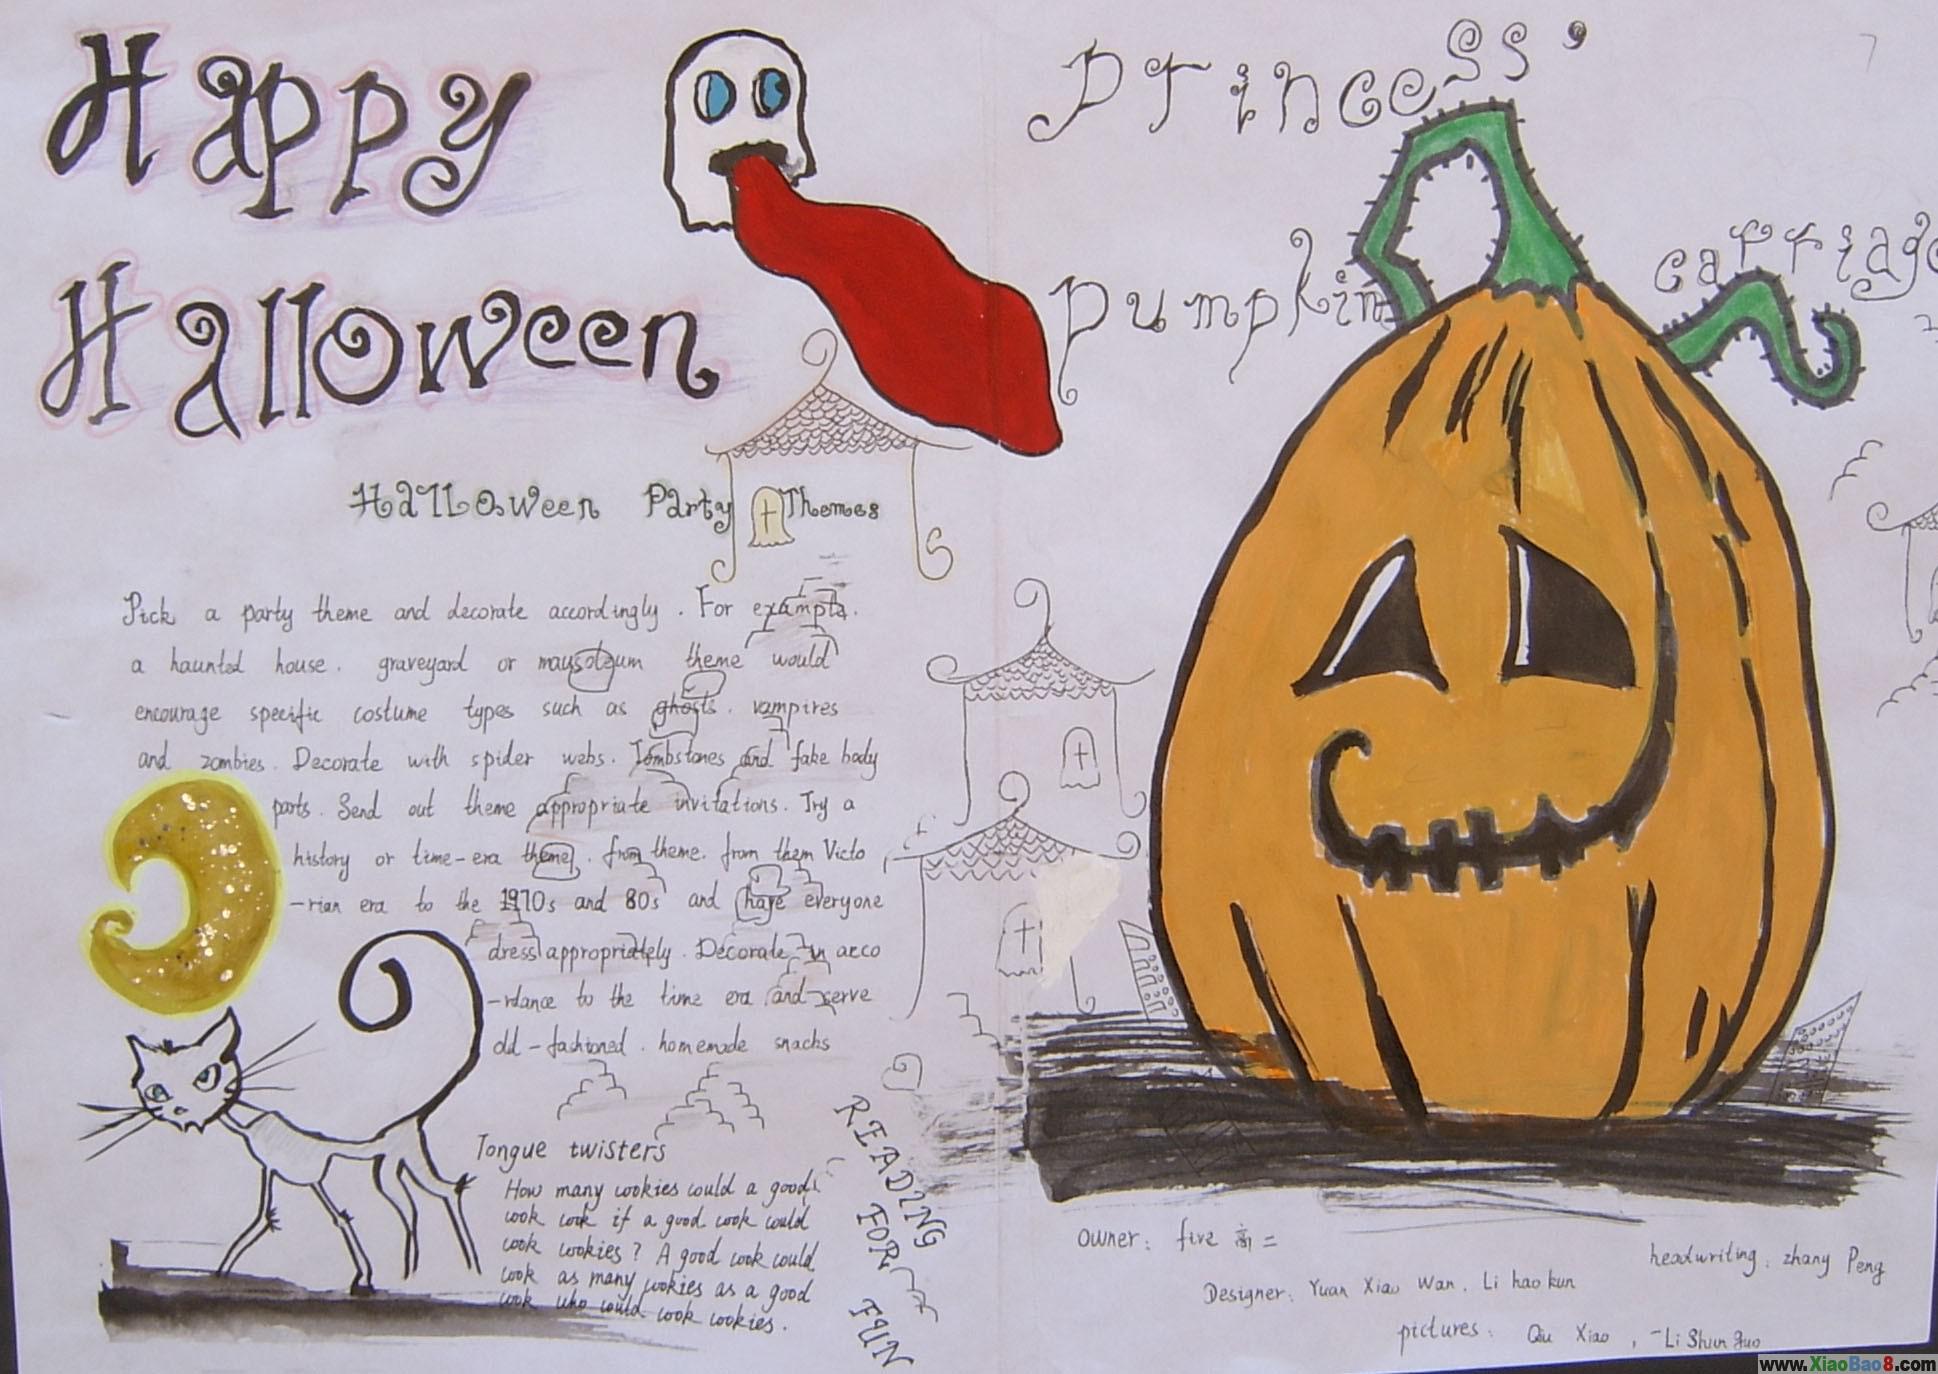 Happy
Halloween
Princess'
pumpkin carriage
Halloween Party Themes
Pick a party theme and decorate accordingly. For example.
a haunted house. graveyard or mausoleum theme would
encourage specific costume types such as ghosts. vampires
and zombies. Decorate with spider webs. Tombstones and fake body
parts. Send out theme appropriate invitations. Try a
history or time-era theme. from theme. from them Victo
-rian era to the 1970s and 80s and have everyone
dress appropriately. Decorate in acco
-rdance to the time era and serve
old-fashioned. homemade snachs
Tongue twisters
How many cookies could a good
cook cook if a good cook could
cook cookies? A good cook could
cook as many cookies as a good
cook who could cook cookies.
READING
FOR
FUN
owner: five 高二
headwriting: zhany Peng
Designer: Yuan Xiao Wan. Li hao kun
pictures: Qiu Xiao, Li Shun guo
www.XiaoBao8.com